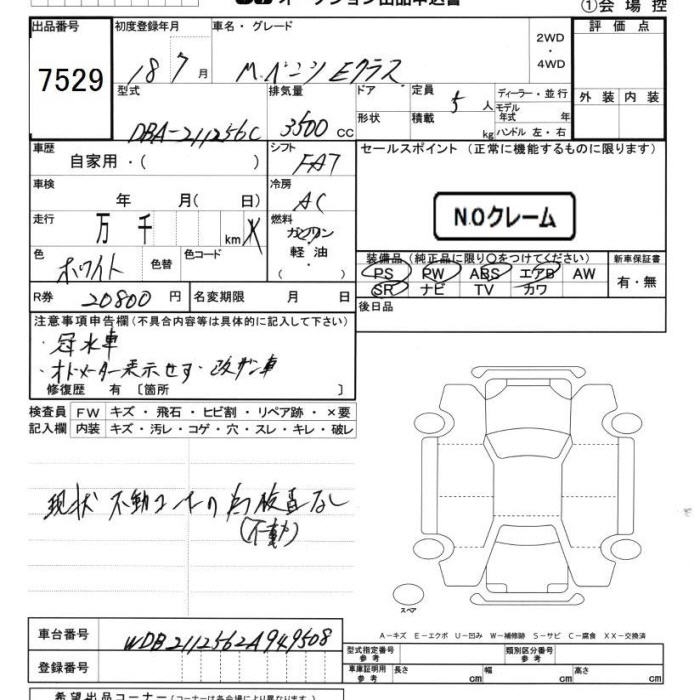 ①会場控
出品番号
7529
初度登録年月
18 7 月
車名・グレード
M.ベンツ Eクラス
2WD
・
4WD
評価点
外装 内装
型式
DBA-211256C
排気量
3500 cc
ドア
形状
定員
5 人
積載
kg
ディーラー・並行
モデル
年式 年
ハンドル 左・右
車歴
自家用・( )
シフト
FA7
車検
年 月( 日)
冷房
AC
走行
万 千 km
燃料
ガソリン
軽油
( ・ )
色
ホワイト
色替
色コード
R券
20800 円
名変期限 月 日
セールスポイント (正常に機能するものに限ります)
N.Oクレーム
装備品 (純正品に限り○をつけてください)
PS PW ABS エアB AW
SR ナビ TV カワ
新車保証書
有・無
後日品
注意事項申告欄(不具合内容等は具体的に記入して下さい)
・冠水車
・オドメーター表示せず・改ザン車
修復歴 有 [箇所 ]
検査員 FW キズ・飛石・ヒビ割・リペア跡・×要
記入欄 内装 キズ・汚レ・コゲ・穴・スレ・キレ・破レ
現状 不動
なし
(不動)
スペア
A-キズ E-エクボ U-凹み W-補修跡 S-サビ C-腐食 XX-交換済
車台番号
WDB2112562A949508
登録番号
型式指定番号
参考
類別区分番号
参考
車庫証明用
参考
長さ cm 幅 cm 高さ cm
希望出品コーナー